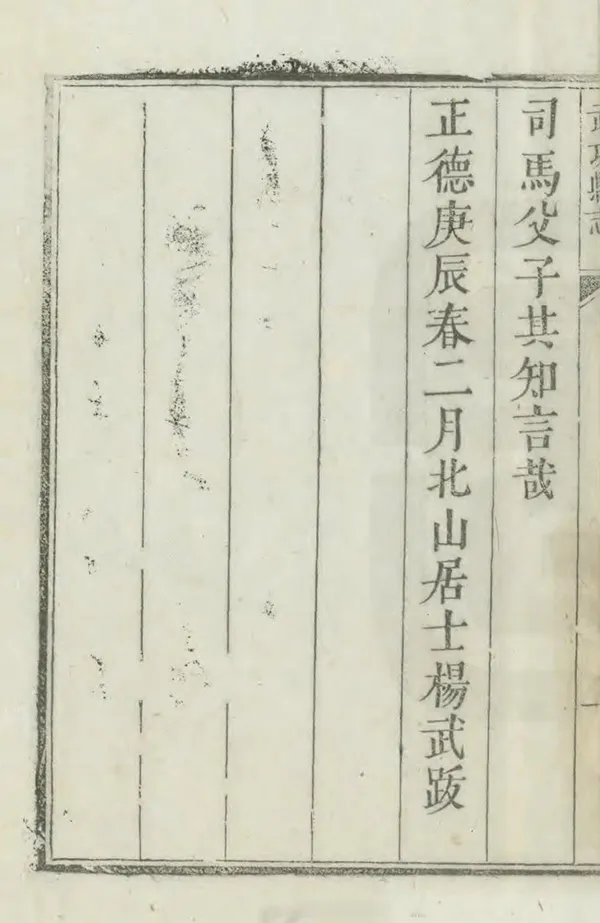 武功縣志
一
司馬父子其知言哉
正德庚辰春二月北山居士楊武跋